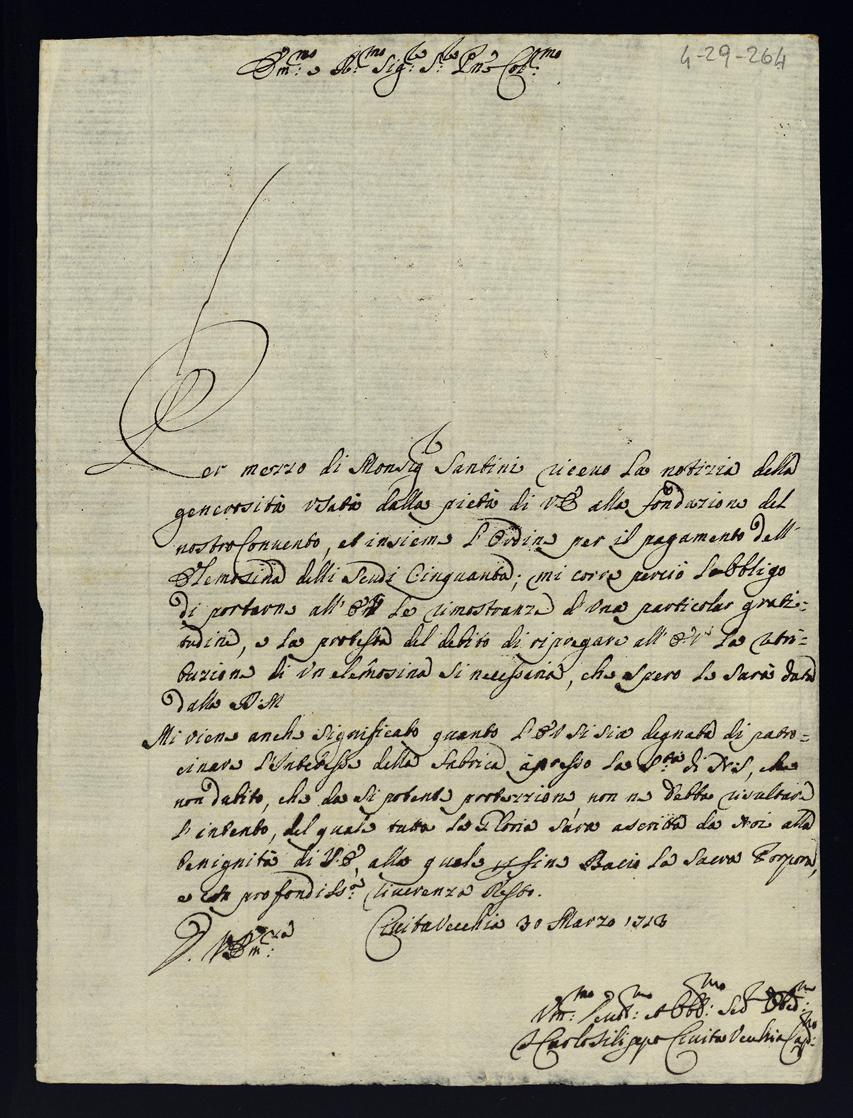 Em:mo e R:mo Sig:re S:re Pne Col:mo
4-29-264
Per mezzo di Monsig.r Santini riceuo la notizia della
generosità usata dalla pietà di V.E. alla fondazione del
nostro Conuento, et insieme l'Ordine per il pagamento dell'
Elemosina delli scudi Cinquanta; mi corre perciò l'obbligo
di portarne all' E.V. le rimostranze d'una particolar grati=
tudine, e la protesta del debito di ripregare all' E.V. la retri=
buzione di un elemosina si necessaria, che spero le sarà data
dalla D.M
Mi viene anche significato quanto l'E.V. si sia degnata di patro=
cinare l'Interesse della fabrica apresso la S.tà di N.S, che
non dubito, che da si potente protezzione non ne debba risultare
l'intento, del quale tutta la Gloria sarà ascritta da Noi alla
benignità di V.E., alla quale in fine Bacio la Sacra Porpora,
e con profondiss:a riuerenza Resto.
D. V. Em:za
CiuitaVecchia 30 Marzo 1713
Vm:mo Seru:re et Obb:mo
F Carlo Filippo Ciuita Vecchia Capp:no